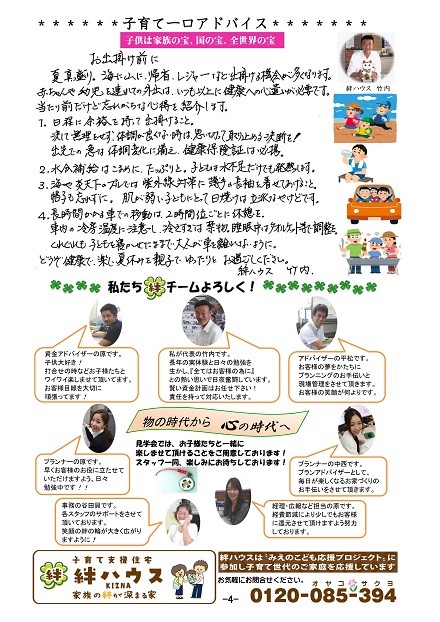 ******子育て一口アドバイス******
子供は家族の宝、国の宝、全世界の宝
お出掛け前に
夏真盛り。海に山に、帰省、レジャーなど出掛ける機会が多くなります。
赤ちゃんや幼児を連れての外出は、いつも以上に健康への心遣いが必要です。
当り前だけど忘れがちな心得を紹介します。
1. 日程に余裕を持って出掛けること。
決して無理をせず、体調が良くない時は、思い切って取り止める決断を!
出先での急な体調変化に備え、健康保険証は必携。
2. 水分補給はこまめに、たっぷりと。子どもは水不足だけでも発熱します。
3. 海や炎天下のプールでは紫外線対策に薄手の長袖を着せてあげること。
帽子も忘れずに。肌が弱い子どもにとって日焼けは立派なやけどです。
4. 長時間かかる車での移動は、2時間位ごとに休憩を。
車内の冷房温度に注意し、冷えすぎは禁物、睡眠中はタオル1枚で調整を。
くれぐれも子どもを寝かせたままで大人が車を離れないように。
どうぞ健康で、楽しい夏休みを親子でゆったりとお過ごしください。
絆ハウス 竹内
絆ハウス 竹内
私たち 絆 チームよろしく!
資金アドバイザーの原です。
子供大好き!
打合せの時などお子様たちと
ワイワイ楽しませて頂いてます。
お客様目線を大切に
頑張ってます!
私が代表の竹内です。
長年の実体験と日々の勉強を
生かし、『全てはお客様の為に』
との熱い思いで日夜奮闘しています。
賢い資金計画はお任せ下さい!
責任を持って対応いたします。
アドバイザーの平松です。
お客様の夢をかたちに
プランニングのお手伝いと
現場管理をさせて頂きます。
お客様の笑顔が何よりです。
物の時代から 心の時代へ
見学会では、お子様たちと一緒に
楽しませて頂けることをご用意しております!
スタッフ一同、楽しみにお待ちしております!
プランナーの原です。
早くお客様のお役に立たせて
いただけますよう、日々
勉強中です!!
プランナーの中西です。
プランアドバイザーとして、
毎日が楽しくなるお家づくりの
お手伝いをさせて頂きます。
事務の谷田貝です。
各スタッフのサポートをさせて
頂いております。
笑顔の絆の輪が大きく広がり
ますように!
経理・広報など担当の原です。
経費節減により少しでもお客様
に還元させて頂けますよう努力
しております。
子育て支援住宅
絆 絆ハウス
KIZNA
家族の絆が深まる家
絆ハウスは『みえのこども応援プロジェクト』に
参加し子育て世代のご家庭を応援しています
お気軽にお問合せください。 オヤコ サクヨ
0120-085-394
-4-